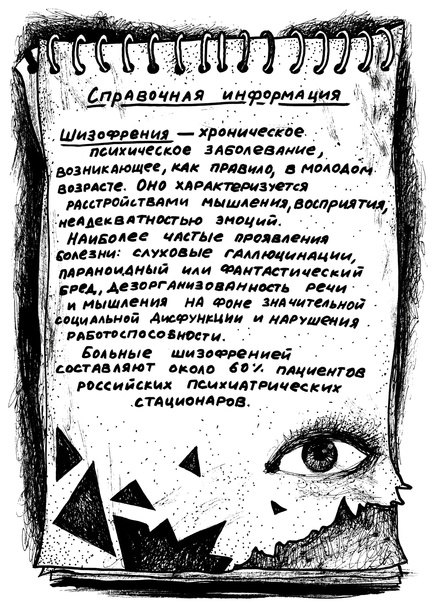 Справочная информация
Шизофрения — хроническое
психическое заболевание,
возникающее, как правило, в молодом
возрасте. Оно характеризуется
расстройствами мышления, восприятия,
неадекватностью эмоций.
Наиболее частые проявления
болезни: слуховые галлюцинации,
параноидный или фантастический
бред, дезорганизованность речи
и мышления на фоне значительной
социальной дисфункции и нарушения
работоспособности.
Больные шизофренией
составляют около 60% пациентов
российских психиатрических
стационаров.